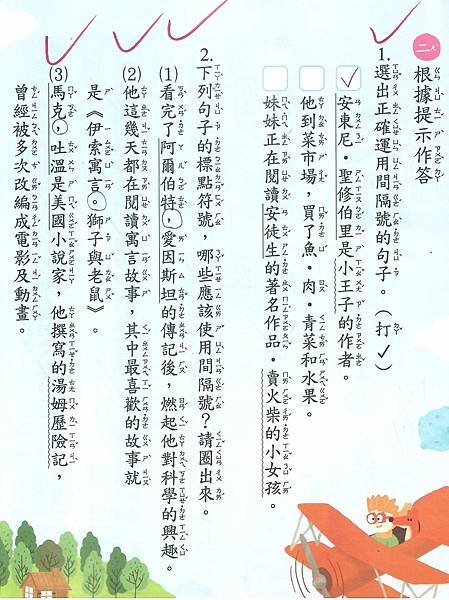 二 根據提示作答
1. 選出正確運用間隔號的句子。(打✓)
✓ 安東尼·聖修伯里是小王子的作者。
他到菜市場,買了魚·肉·青菜和水果。
妹妹正在閱讀安徒生的著名作品·賣火柴的小女孩。
2. 下列句子的標點符號,哪些應該使用間隔號?請圈出來。
(1) 看完了阿爾伯特,愛因斯坦的傳記後,燃起他對科學的興趣。
(2) 他這幾天都在閱讀寓言故事,其中最喜歡的故事就
是《伊索寓言。獅子與老鼠》。
(3) 馬克,吐溫是美國小說家,他撰寫的湯姆歷險記,
曾經被多次改編成電影及動畫。